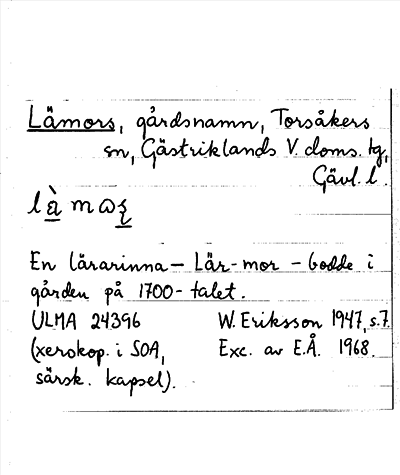 Lämors, gårdsnamn, Torsåkers
sn, Gästriklands V. doms. tg,
Gävl. l.
En lärarinna – Lär-mor – bodde i
gården på 1700-talet.
ULMA 24396
(xerokop. i SOA,
särsk. kapsel).
W. Eriksson 1947, s. 7.
Exc. av E.Å. 1968.